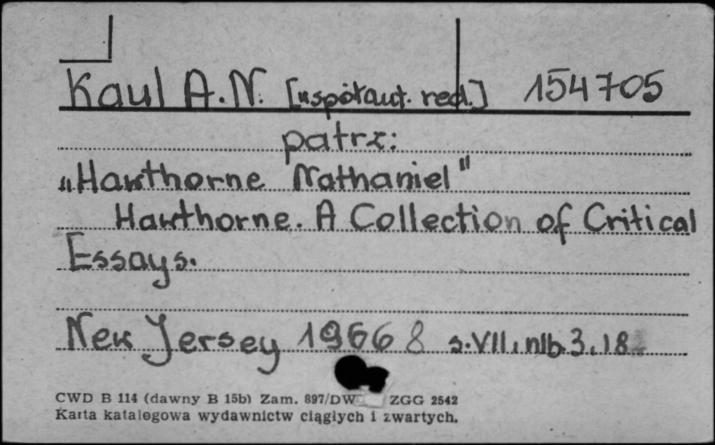 Kaul A.N. [współaut. red.] 154705
patrz:
„Hawthorne Nathaniel"
Hawthorne. A Collection of Critical
Essays.
New Jersey 1966 8 s.VII, nlb.3, 18
CWD B 114 (dawny B 15b) Zam. 897/DW ZGG 2542
Karta katalogowa wydawnictw ciągłych i zwartych.